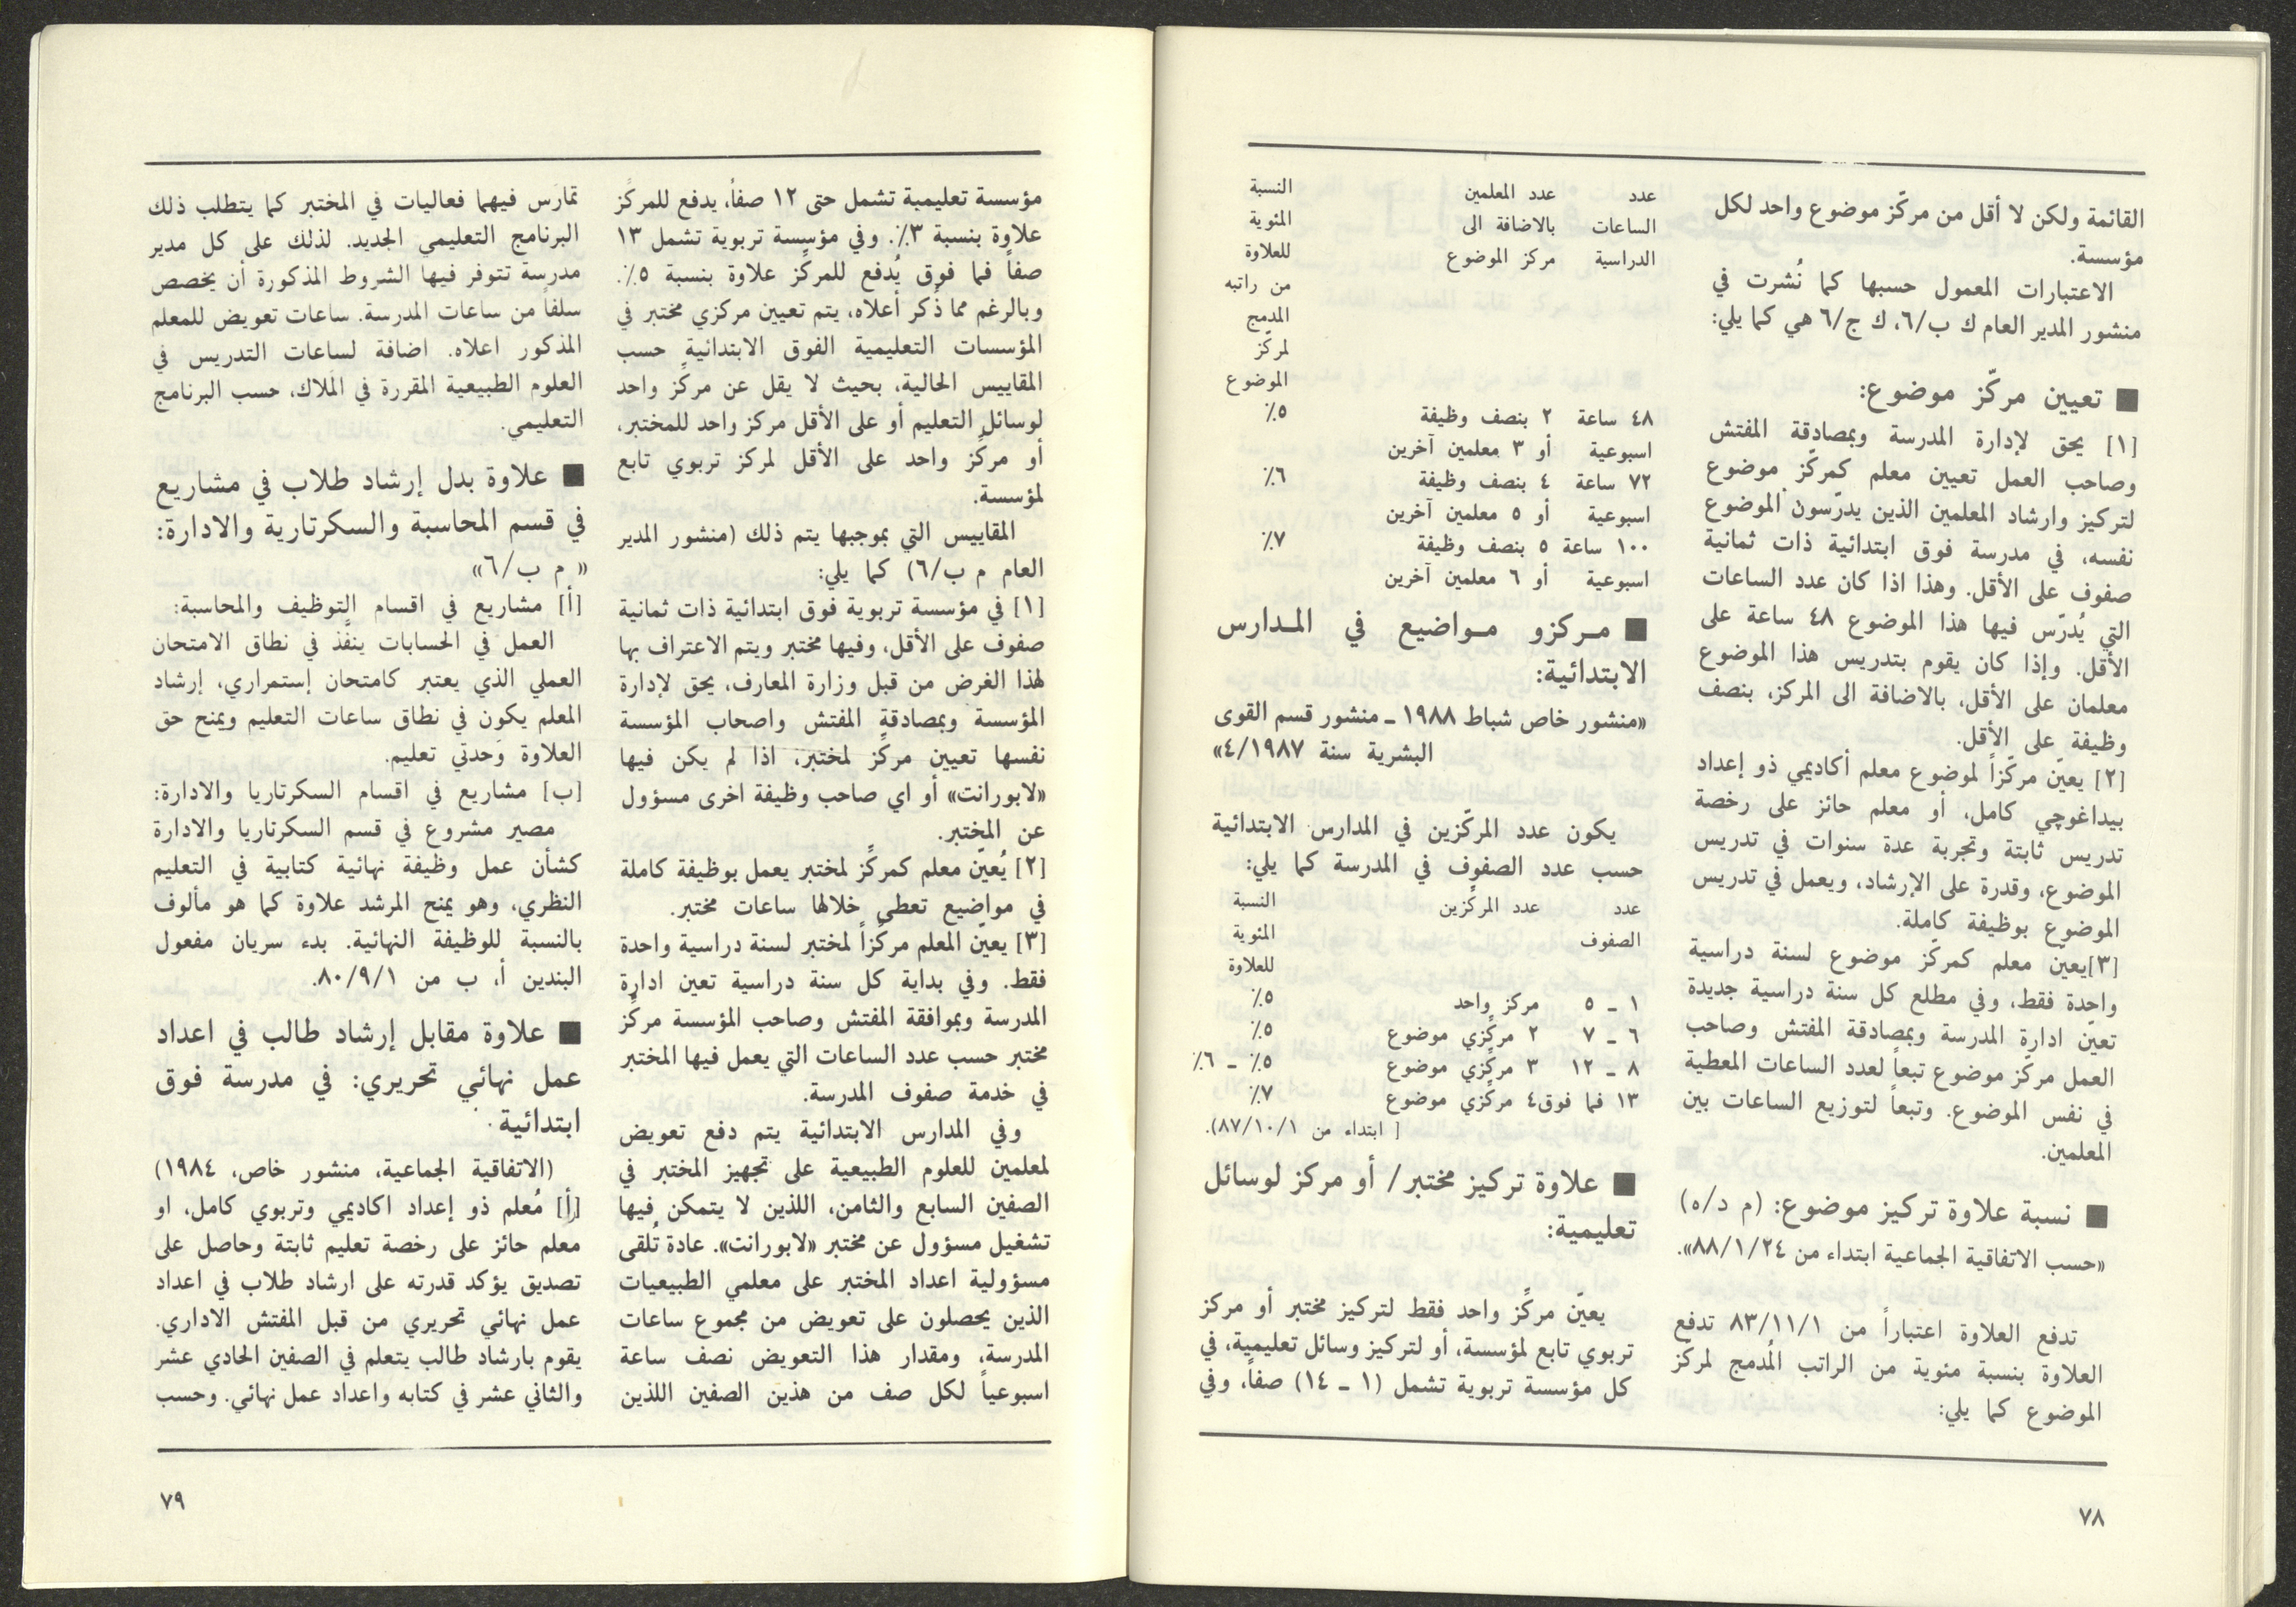 القائمة ولكن لا أقل من مركّز موضوع واحد لكل
مؤسسة.
الاعتبارات المعمول حسبها كما نُشرت في
منشور المدير العام ك ب/٦، ك ج/٦ هي كما يلي:
■ تعيين مركّز موضوع:
[١] يحق لإدارة المدرسة وبمصادقة المفتش
وصاحب العمل تعيين معلم كمركّز موضوع
لتركيز وارشاد المعلمين الذين يدرّسون الموضوع
نفسه، في مدرسة فوق ابتدائية ذات ثمانية
صفوف على الأقل. وهذا اذا كان عدد الساعات
التي يُدرّس فيها هذا الموضوع ٤٨ ساعة على
الأقل. وإذا كان يقوم بتدريس هذا الموضوع
معلمان على الأقل، بالاضافة الى المركز، بنصف
وظيفة على الأقل.
[٢] يعيّن مركّزاً لموضوع معلم أكاديمي ذو إعداد
بيداغوچي كامل، أو معلم حائز على رخصة
تدريس ثابتة وتجربة عدة سنوات في تدريس
الموضوع، وقدرة على الإرشاد، ويعمل في تدريس
الموضوع بوظيفة كاملة.
[٣]يعيّن معلم كمركّز موضوع لسنة دراسية
واحدة فقط، وفي مطلع كل سنة دراسية جديدة
تعيّن ادارة المدرسة وبمصادقة المفتش وصاحب
العمل مركّز موضوع تبعاً لعدد الساعات المعطية
في نفس الموضوع. وتبعاً لتوزيع الساعات بين
المعلمين.
■ نسبة علاوة تركيز موضوع: (م د/٥)
«حسب الاتفاقية الجماعية ابتداء من ٨٨/١/٢٤».
تدفع العلاوة اعتباراً من ٨٣/١١/١ تدفع
العلاوة بنسبة مئوية من الراتب المُدمج لمركّز
الموضوع كما يلي:
عدد عدد المعلمين النسبة
الساعات بالاضافة الى المئوية
الدراسية مركز الموضوع للعلاوة
من راتبه
المدمج
لمركّز
الموضوع
٤٨ ساعة ٢ بنصف وظيفة ٥٪
اسبوعية أو ٣ معلمين آخرين
٧٢ ساعة ٤ بنصف وظيفة ٦٪
اسبوعية أو ٥ معلمين آخرين
١٠٠ ساعة ٥ بنصف وظيفة ٧٪
اسبوعية أو ٦ معلمين آخرين
■ مـركزو مـواضيع في المـدارس
الابتدائية:
«منشور خاص شباط ١٩٨٨ ـ منشور قسم القوى
البشرية سنة ٤/١٩٨٧»
يكون عدد المركّزين في المدارس الابتدائية
حسب عدد الصفوف في المدرسة كما يلي:
عدد عدد المركّزين النسبة
الصفوف المئوية
للعلاوة
١ ـ ٥ مركز واحد ٥٪
٦ ـ ٧ ٢ مركّزي موضوع ٥٪
٨ ـ ١٢ ٣ مركّزي موضوع ٥٪ ـ ٦٪
١٣ فما فوق٤ مركّزي موضوع ٧٪
[ ابتداء من ٨٧/١٠/١).
■ علاوة تركيز مختبر/ أو مركز لوسائل
تعليمية:
يعيّن مركّز واحد فقط لتركيز مختبر أو مركز
تربوي تابع لمؤسسة، أو لتركيز وسائل تعليمية، في
كل مؤسسة تربوية تشمل (١ ـ ١٤) صفاً، وفي
٧٨
مؤسسة تعليمية تشمل حتى ١٢ صفاً، يدفع للمركّز
علاوة بنسبة ٣٪. وفي مؤسسة تربوية تشمل ١٣
صفاً فما فوق يُدفع للمركّز علاوة بنسبة ٥٪.
وبالرغم مما ذُكر أعلاه، يتم تعيين مركزي مختبر في
المؤسسات التعليمية الفوق الابتدائية حسب
المقاييس الحالية، بحيث لا يقل عن مركّز واحد
لوسائل التعليم أو على الأقل مركز واحد للمختبر،
أو مركّز واحد على الأقل لمركز تربوي تابع
لمؤسسة.
المقاييس التي بموجبها يتم ذلك (منشور المدير
العام م ب/٦) كما يلي:
[١] في مؤسسة تربوية فوق ابتدائية ذات ثمانية
صفوف على الأقل، وفيها مختبر ويتم الاعتراف بها
لهذا الغرض من قبل وزارة المعارف، يحق لإدارة
المؤسسة وبمصادقة المفتش واصحاب المؤسسة
نفسها تعيين مركّز لمختبر، اذا لم يكن فيها
«لابورانت» أو اي صاحب وظيفة اخرى مسؤول
عن المختبر.
[٢] يُعيّن معلم كمركّز لمختبر يعمل بوظيفة كاملة
في مواضيع تعطى خلالها ساعات مختبر.
[٣] يعيّن المعلم مركّزاً لمختبر لسنة دراسية واحدة
فقط. وفي بداية كل سنة دراسية تعين ادارة
المدرسة وبموافقة المفتش وصاحب المؤسسة مركّز
مختبر حسب عدد الساعات التي يعمل فيها المختبر
في خدمة صفوف المدرسة.
وفي المدارس الابتدائية يتم دفع تعويض
لمعلمين للعلوم الطبيعية على تجهيز المختبر في
الصفين السابع والثامن، اللذين لا يتمكن فيها
تشغيل مسؤول عن مختبر «لابورانت». عادة تُلقى
مسؤولية اعداد المختبر على معلمي الطبيعيات
الذين يحصلون على تعويض من مجموع ساعات
المدرسة، ومقدار هذا التعويض نصف ساعة
اسبوعياً لكل صف من هذين الصفين اللذين
تمارَس فيهما فعاليات في المختبر كما يتطلب ذلك
البرنامج التعليمي الجديد. لذلك على كل مدير
مدرسة تتوفر فيها الشروط المذكورة أن يخصص
سلفاً من ساعات المدرسة. ساعات تعويض للمعلم
المذكور اعلاه. اضافة لساعات التدريس في
العلوم الطبيعية المقررة في المَلاك، حسب البرنامج
التعليمي.
■ علاوة بدل إرشاد طلاب في مشاريع
في قسم المحاسبة والسكرتارية والادارة:
« م ب/٦»
[أ] مشاريع في اقسام التوظيف والمحاسبة:
العمل في الحسابات ينفَّذ في نطاق الامتحان
العملي الذي يعتبر كامتحان إستمراري، إرشاد
المعلم يكون في نطاق ساعات التعليم ويمنح حق
العلاوة وَحدتي تعليم.
[ب] مشاريع في اقسام السكرتاريا والادارة:
مصير مشروع في قسم السكرتاريا والادارة
كشأن عمل وظيفة نهائية كتابية في التعليم
النظري، وهو يمنح المرشد علاوة كما هو مألوف
بالنسبة للوظيفة النهائية. بدء سريان مفعول
البندين أ، ب من ٨٠/٩/١.
■ علاوة مقابل إرشاد طالب في اعداد
عمل نهائي تحريري: في مدرسة فوق
ابتدائية
(الاتفاقية الجماعية، منشور خاص، ١٩٨٤)
[أ] مُعلم ذو إعداد اكاديمي وتربوي كامل، او
معلم حائز على رخصة تعليم ثابتة وحاصل على
تصديق يؤكد قدرته على ارشاد طلاب في اعداد
عمل نهائي تحريري من قبل المفتش الاداري.
يقوم بارشاد طالب يتعلم في الصفين الحادي عشر
والثاني عشر في كتابه واعداد عمل نهائي. وحسب
٧٩